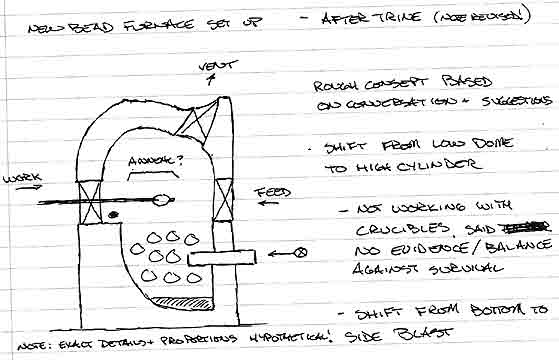 NEW BEAD FURNACE SET UP
- AFTER TRINE (NOTE REVISED!)
VENT
ROUGH CONSEPT BASED
ON CONVERSATION + SUGGESTIONS
- SHIFT FROM LOW DOME
TO HIGH CYLINDER
ANNEAL?
WORK
FEED
- NOT WORKING WITH
CRUCIBLES, SAID
NO EVIDENCE / BALANCE
AGAINST SURVIVAL
- SHIFT FROM BOTTOM TO
SIDE BLAST
NOTE: EXACT DETAILS + PROPORTIONS HYPOTHETICAL!